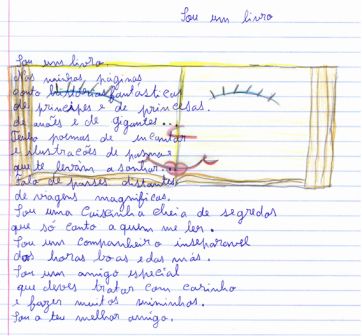 Sou um livro
Sou um livro.
Nas minhas páginas
conto histórias fantásticas
de príncipes e de princesas.
de anões e de gigantes...
Tenho poemas de encantar
e ilustrações de pasmar
que te levam a sonhar...
Falo de países distantes,
de viagens magníficas.
Sou uma caixinha cheia de segredos
que só conto a quem me ler.
Sou um companheiro inseparavel
das horas boas e das más.
Sou um amigo especial
que deves tratar com carinho
e fazer muitos miminhos.
Sou o teu melhor amigo.